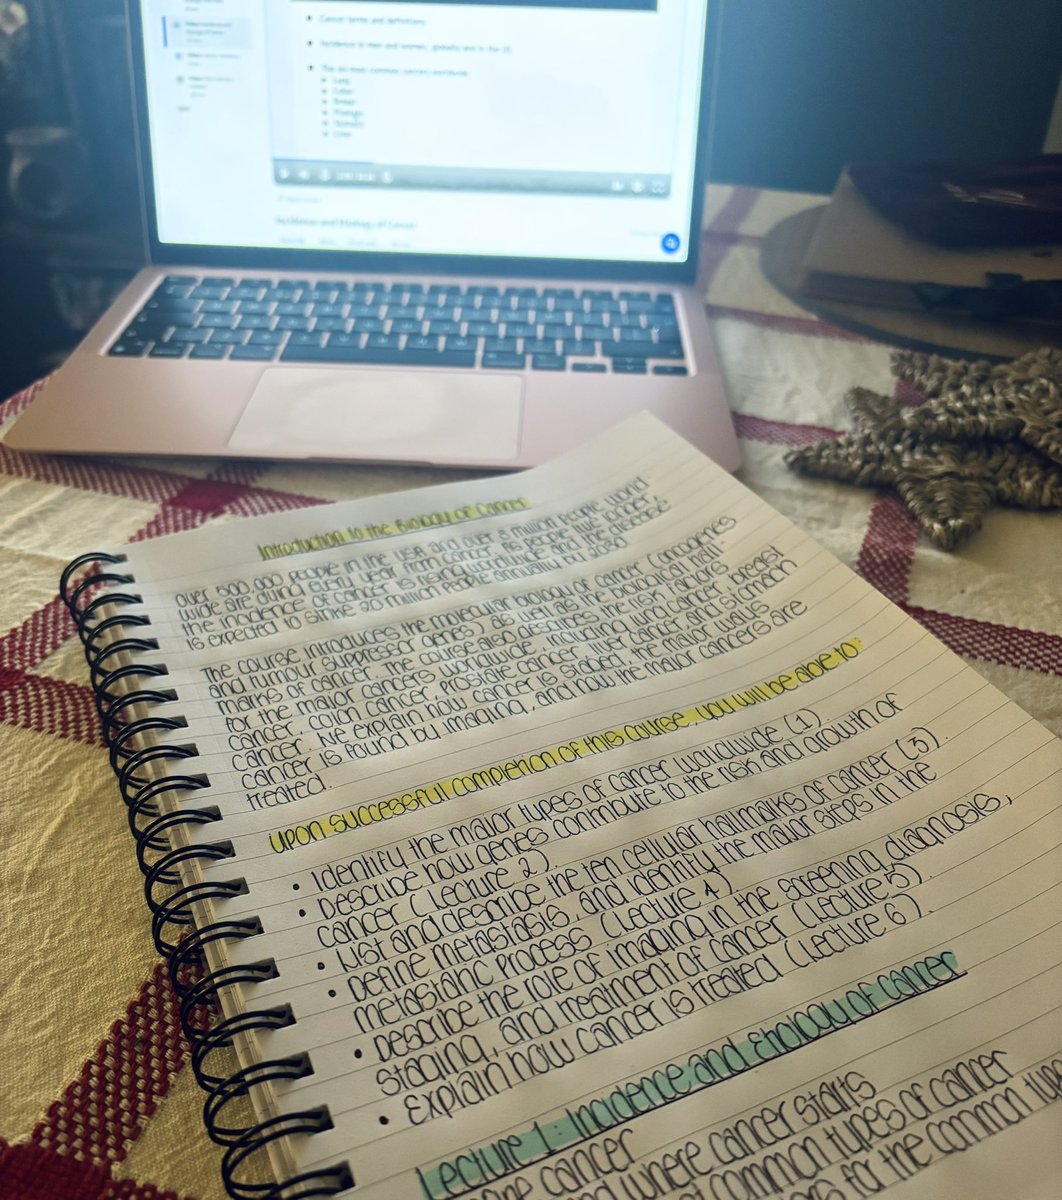 Cancer terms and definitions
Incidence in men and women, globally and in the US
The six most common cancers worldwide
Lung
Colon
Breast
Prostate
Stomach
Liver
Incidence and Etiology of Cancer
Introduction to the Biology of Cancer
Over 500 000 people in the USA and over 8 million people world
wide are dying every year from cancer. As people live longer,
the incidence of cancer is rising worldwide and the disease
is expected to strike 20 million people annually by 2030
The course introduces the molecular biology of cancer (oncogenes
and tumour suppressor genes) as well as the biological hall-
marks of cancer. The course also describes the risk factors
for the major cancers worldwide, including lung cancer, breast
cancer, colon cancer, prostate cancer, liver cancer and stomach
cancer. We explain how cancer is staged, the major ways
cancer is found by imaging, and how the major cancers are
treated.
Upon successful completion of this course, you will be able to"
• Identify the major types of cancer worldwide (1)
• Describe how genes contribute to the risk and growth of
cancer (Lecture 2)
• List and describe the ten cellular hallmarks of cancer (3).
• Define metastasis, and identify the major steps in the
metastatic process (Lecture 4)
• Describe the role of imaging in the screening, diagnosis,
staging, and treatment of cancer (Lecture 5).
• Explain how cancer is treated (Lecture 6).
Lecture 1: Incidence and Etiology of cancer
cancer
and where cancer starts
common types of cancer
for the common